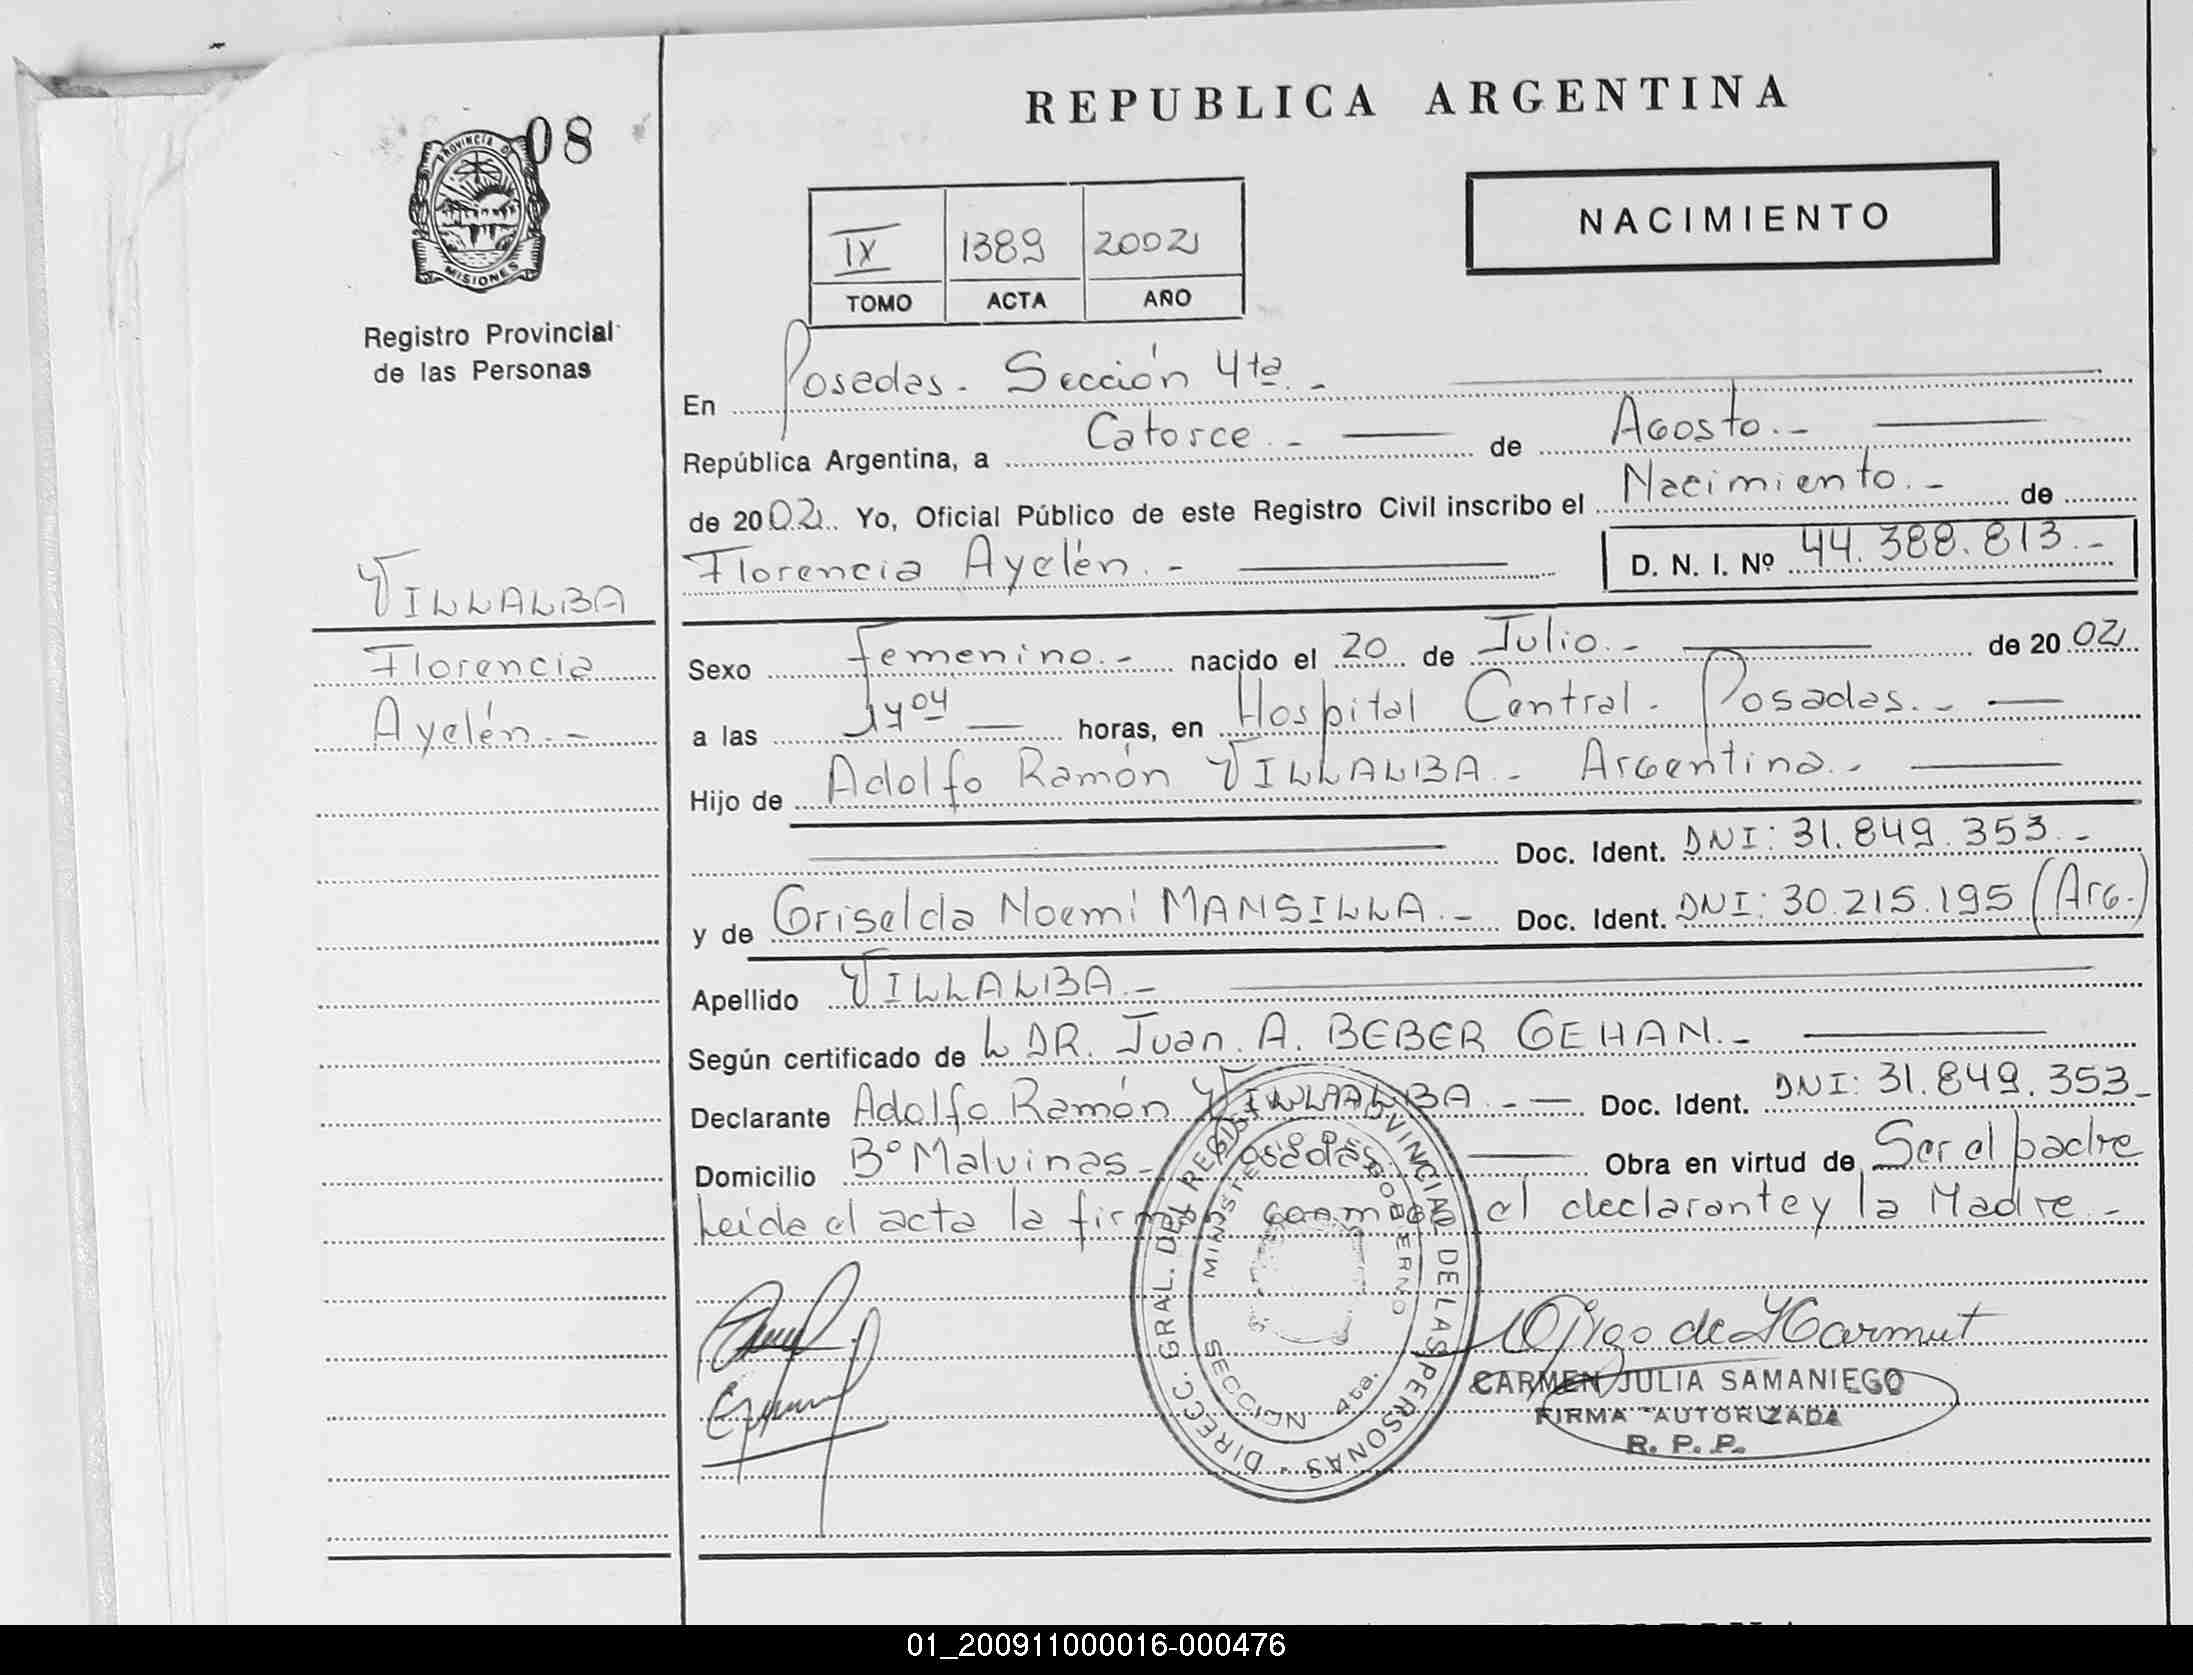 REPUBLICA ARGENTINA
08
PROVINCIA DE
MISIONES
Registro Provincial
de las Personas
NACIMIENTO
IX 1389 2002
TOMO ACTA AÑO
En Posadas. Sección 4ta. -
República Argentina, a Catorce. - de Agosto. -
de 2002. Yo, Oficial Público de este Registro Civil inscribo el Nacimiento. - de
Florencia Ayelén. - D. N. I. Nº 44.388.813. -
VILLALBA
Florencia
Ayelén. -
Sexo femenino. - nacido el 20 de Julio. - de 2002
a las 1404 horas, en Hospital Central. Posadas. -
Hijo de Adolfo Ramón VILLALBA - Argentina. -
Doc. Ident. DNI: 31.849.353. -
y de Griselda Noemí MANSILLA. - Doc. Ident. DNI: 30.215.195 (Arg.)
Apellido VILLALBA. -
Según certificado de L DR. Juan. A. BEBER GEHAN. -
Declarante Adolfo Ramón VILLALBA. - Doc. Ident. DNI: 31.849.353 -
Domicilio Bº Malvinas - Posadas. Obra en virtud de Ser el padre
Leida el acta la firman conmigo el declarante y la Madre. -
DIRECC. GRAL. DEL REGIST. PROVINCIAL DE LAS PERSONAS -
MINISTERIO DE GOBIERNO
SECCION 4ta.
de Harmut
CARMEN JULIA SAMANIEGO
FIRMA AUTORIZADA
R. P. P.
01_200911000016-000476